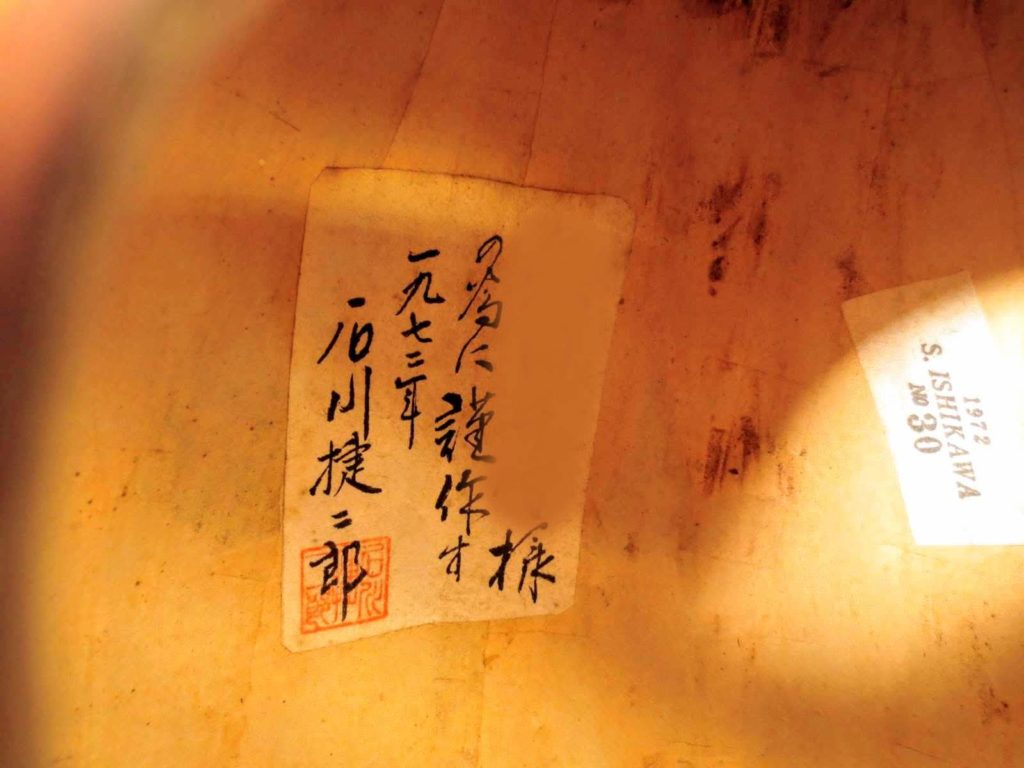 様
の為に謹作す
一九七二年
石川捷二郎
1972
S. ISHIKAWA
NO 30